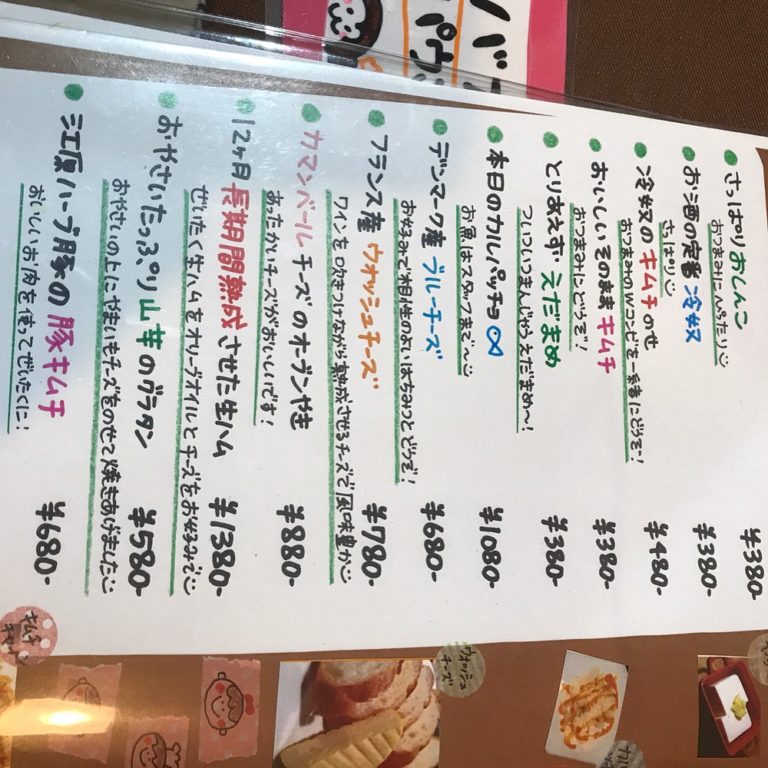 さっぱり おしんこ ¥380-
おつまみにぴったり
お酒の定番 冷奴 ¥380-
さっぱり
冷奴の キムチのせ ¥480-
おつまみのWコンビを一番にどうぞ!
おいしいそのまま キムチ ¥380-
おつまみにどうぞ!
とりあえず えだまめ ¥380-
ついついつまんじゃうえだまめ〜!
本日のカルパッチョ ¥1080-
お魚はスタッフまで〜
デンマーク産 ブルーチーズ ¥680-
お好みで相性のよいはちみつとどうぞ!
フランス産 ウォッシュチーズ ¥780-
ワインを吹きつけながら熟成させるチーズで風味豊か
カマンベールチーズのオーブンやき ¥880-
あったかいチーズがおいしいです!
12ヶ月 長期間熟成させた生ハム ¥1380-
ぜいたく生ハムをオリーブオイルとチーズをお好みで
おやさいたっぷり山芋のグラタン ¥580-
おやさいの上にやまいもチーズをのせて焼きあげました
三江原ハーブ豚の 豚キムチ ¥680-
おいしいお肉を使てぜいたくに!
ウォッシュ
チーズ
キムチ